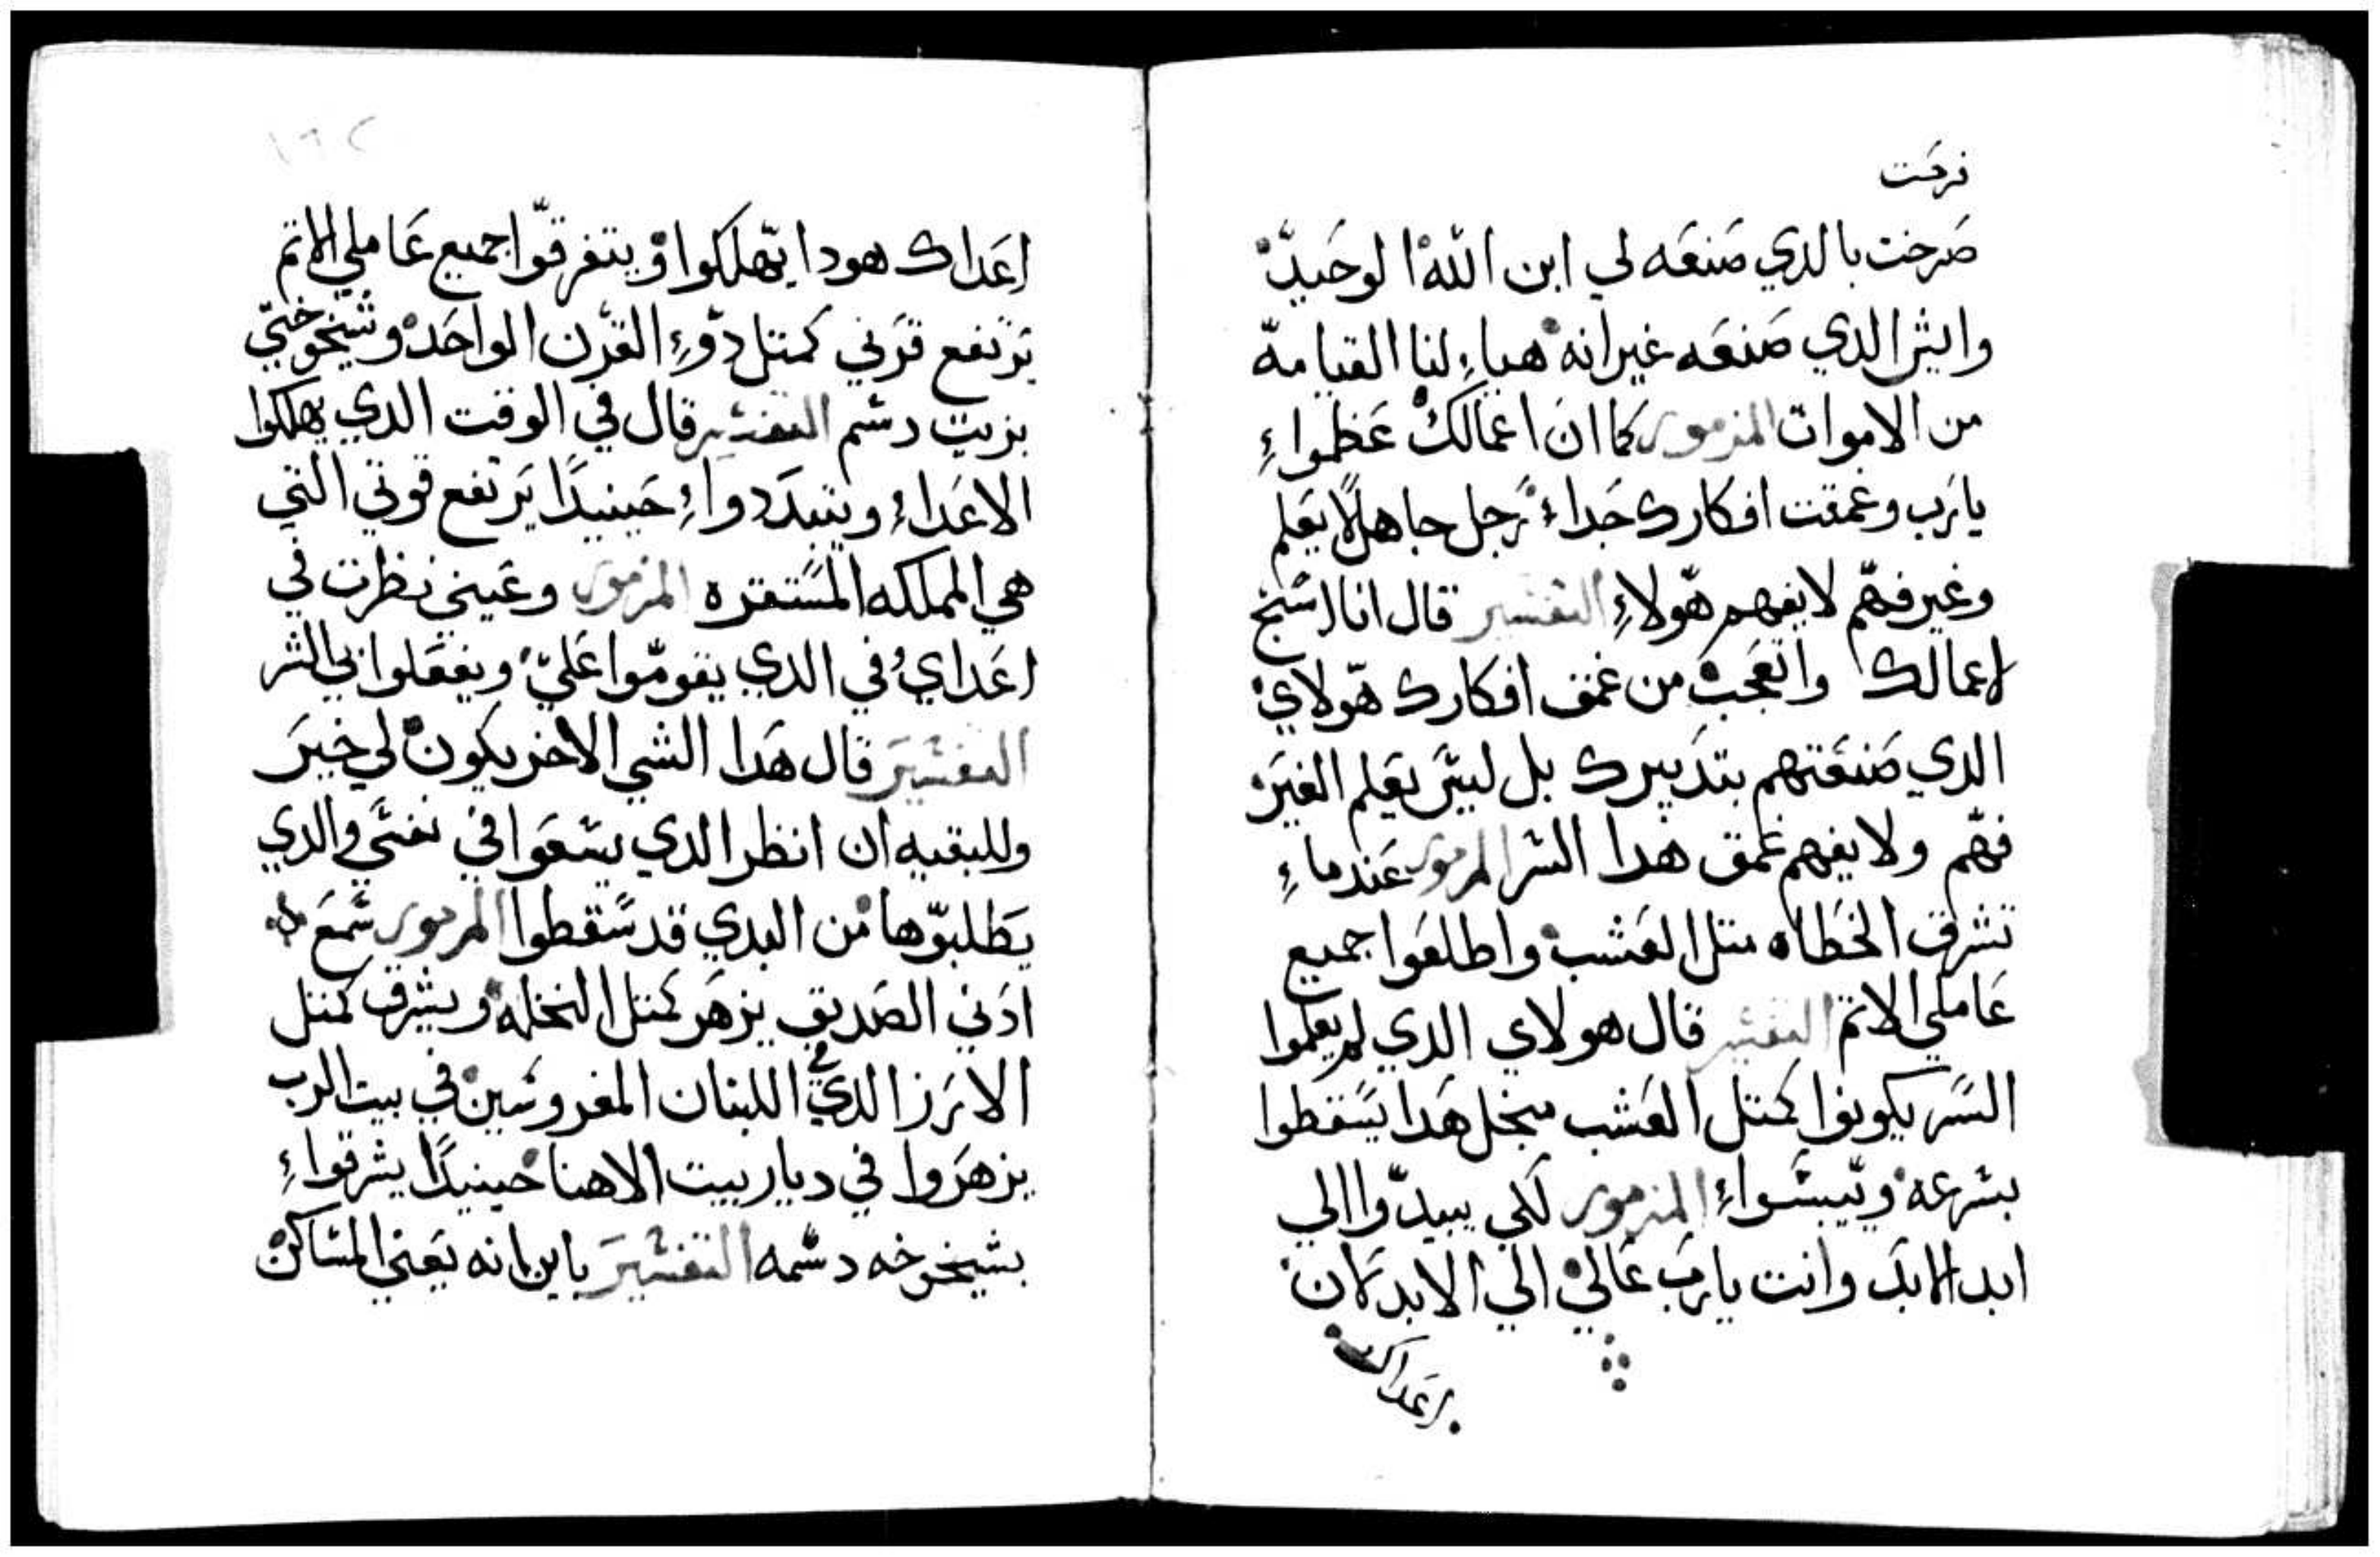 فرحت
صرخت بالدي صنعه لي ابن الله الوحيد
والشر الدي صنعه غير انه هياء لنا القيامه
من الاموات المزمور كما ان اعمالك عظمواء
يارب وعمقت افكارك جداء رجل جاهلًا يعلم
وغير فهم لا يفهم هولاء التفسير قال انا اسبح
لاعمالك واتعجب من عمق افكارك هولاي
الدي صنعتهم بتدبيرك بل ليس يعلم الغير
فهم ولا يفهم عمق هدا السر المزمور عندماء
تشرق الخطاه متل العشب واطلعوا جميع
عاملي الاتم التفسير قال هولاي الدي لم يعلموا
السر يكونوا كمتل العشب منجل هدا يسقطوا
بسرعه ويبسواء المزمور لكي يبيدوا الي
ابد الابد وانت يارب عالي الي الابد كان
اعداك
اعداك هودا يهلكوا ويتفرقوا جميع عاملي الاتم
يرتفع قرني كمتل دوء القرن الواحد وشيخوختي
بزيت دسم التفسير قال في الوقت الدي يهلكوا
الاعداء ويتبددواء حينيدًا يرتفع قوتي التي
هي المملكه المستقره المزمور وعيني نظرت في
اعداي في الدي يقوموا علي ويفعلوا بي الشر
التفسير قال هدا الشي الاخر يكون لي خير
وللبقيه ان انظر الدي يسعوا في نفسي والدي
يطلبوها من البدي قد سقطوا المزمور سمع
ادني الصديق يزهر كمتل النخله ويشرق كمتل
الارز الدي في اللبنان المغروسين في بيت الرب
يزهروا في ديار بيت الاهنا حينيدًا يشرقواء
بشيخوخه دسمه التفسير باين انه يعني المساكن
١٩٢